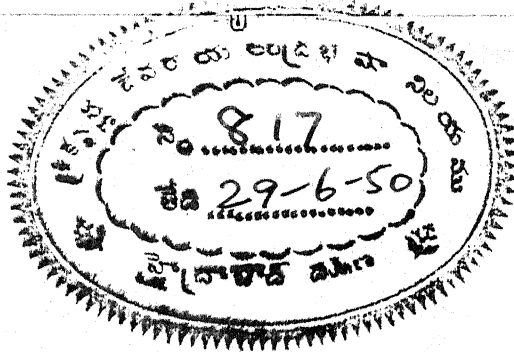 శ్రీకృష్ణ దేవరాయ ఆంధ్రభాషా నిలయము
నం 817
తేది 29-6-50
హైద్రాబాద్